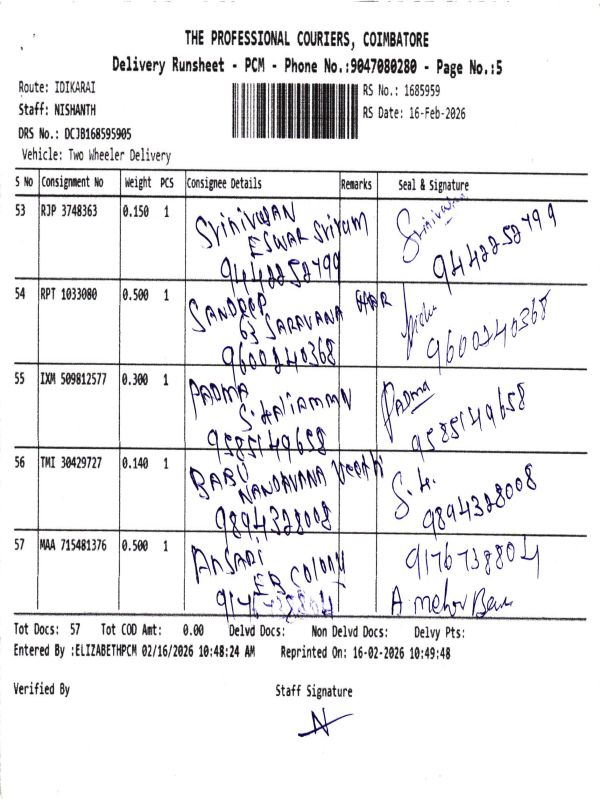 THE PROFESSIONAL COURIERS, COIMBATORE
Delivery Runsheet - PCM - Phone No.:9047080280 - Page No.:5
Route: IDIKARAI
RS No.: 1685959
Staff: NISHANTH
RS Date: 16-Feb-2026
DRS No.: DCJB168595905
Vehicle: Two Wheeler Delivery
S No Consignment No Weight PCS Consignee Details Remarks Seal & Signature
53 RJP 3748363 0.150 1 Srinivasan Srinivasan
ESWAR Sriram
9442252799 9442252799
54 RPT 1033080 0.500 1 SANDEEP
63 SARAVANA
9600240368 9600240368
55 IXM 509812577 0.300 1 PADMA Padma
S. HALIAMMAN
9585149658 9585149658
56 TMI 30429727 0.140 1 BABU S.H.
NANDAVANA Veethi
9894328008 9894328008
57 MAA 715481376 0.500 1 ANSARI 9176738804
EB COLONY
A
Tot Docs: 57 Tot COD Amt: 0.00 Delvd Docs: Non Delvd Docs: Delvy Pts:
Entered By :ELIZABETHPCM 02/16/2026 10:48:24 AM Reprinted On: 16-02-2026 10:49:48
Verified By Staff Signature
N